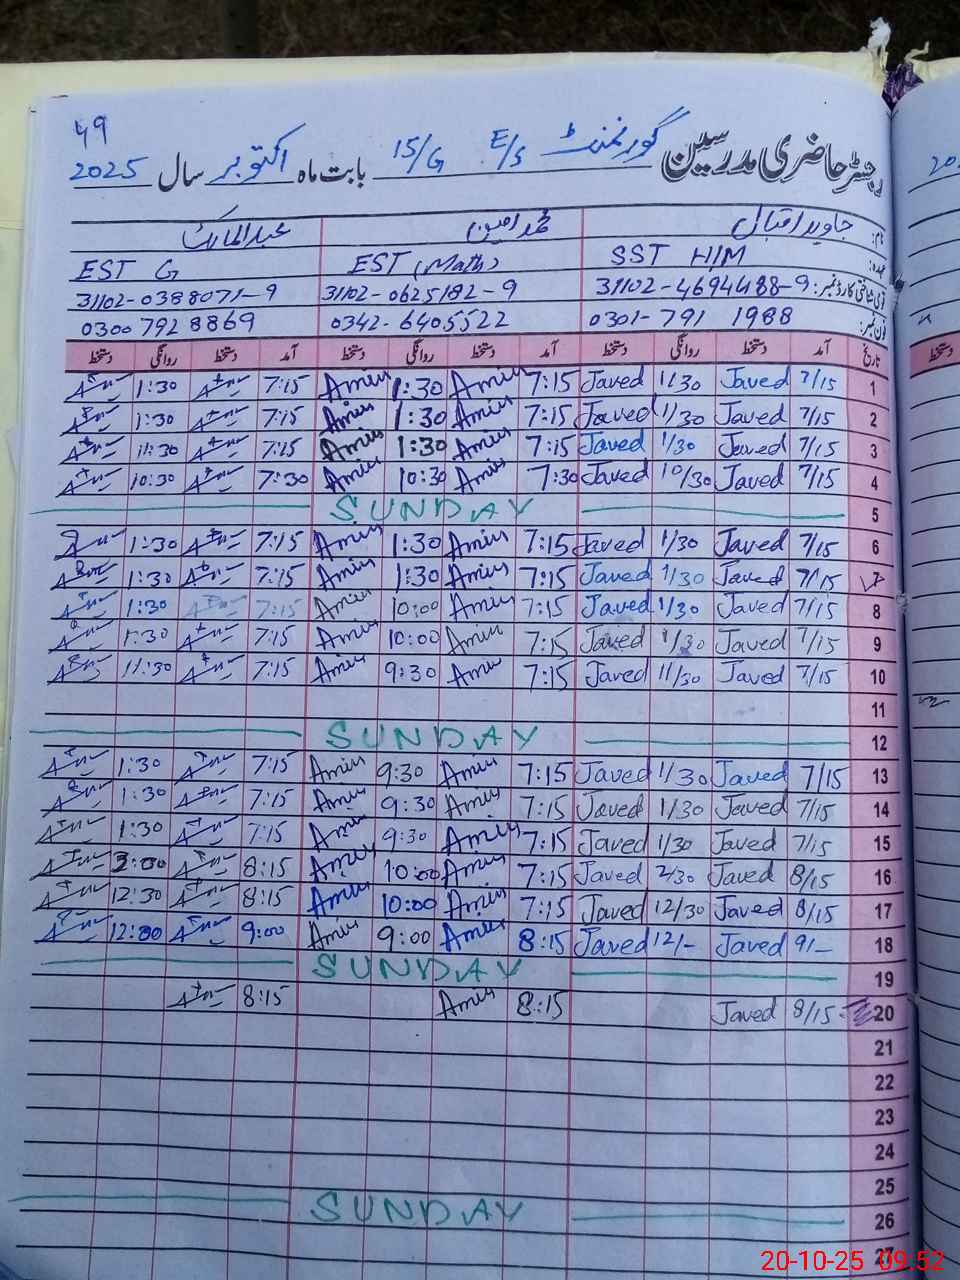 49
رجسٹر حاضری مدرسین گورنمنٹ E/S 15/G بابت ماہ اکتوبر سال 2025
نام: جاوید اقبال محمد امین عبدالمالک
عہدہ: SST H/M EST (Math) EST G
قومی شناختی کارڈ نمبر: 31102-4694488-9 31102-0625182-9 31102-0388071-9
فون نمبر: 0301-791 1988 0342-6405522 0300 792 8869
تاریخ آمد دستخط روانگی دستخط آمد دستخط روانگی دستخط آمد دستخط روانگی دستخط
1 7/15 Javed 1/30 Javed 7:15 Amin 1:30 Amin 7:15 1:30
2 7/15 Javed 1/30 Javed 7:15 Amin 1:30 Amin 7:15 1:30
3 7/15 Javed 1/30 Javed 7:15 Amin 1:30 Amin 7:15 11:30
4 7/15 Javed 10/30 Javed 7:30 Amin 10:30 Amin 7:30 10:30
5 SUNDAY
6 7/15 Javed 1/30 Javed 7:15 Amin 1:30 Amin 7:15 1:30
7 7/15 Javed 1/30 Javed 7:15 Amin 1:30 Amin 7:15 1:30
8 7/15 Javed 1/30 Javed 7:15 Amin 10:00 Amin 7:15 1:30
9 7/15 Javed 1/30 Javed 7:15 Amin 10:00 Amin 7:15 1:30
10 7/15 Javed 11/30 Javed 7:15 Amin 9:30 Amin 7:15 11:30
11
12 SUNDAY
13 7/15 Javed 1/30 Javed 7:15 Amin 9:30 Amin 7:15 1:30
14 7/15 Javed 1/30 Javed 7:15 Amin 9:30 Amin 7:15 1:30
15 7/15 Javed 1/30 Javed 7:15 Amin 9:30 Amin 7:15 1:30
16 8/15 Javed 2/30 Javed 7:15 Amin 10:00 Amin 8:15 3:00
17 8/15 Javed 12/30 Javed 7:15 Amin 10:00 Amin 8:15 12:30
18 9/- Javed 12/- Javed 8:15 Amin 9:00 Amin 9:00 12:00
19 SUNDAY
20 8/15 Javed 8:15 Amin 8:15
21
22
23
24
25
26 SUNDAY
27
20-10-25 09:52